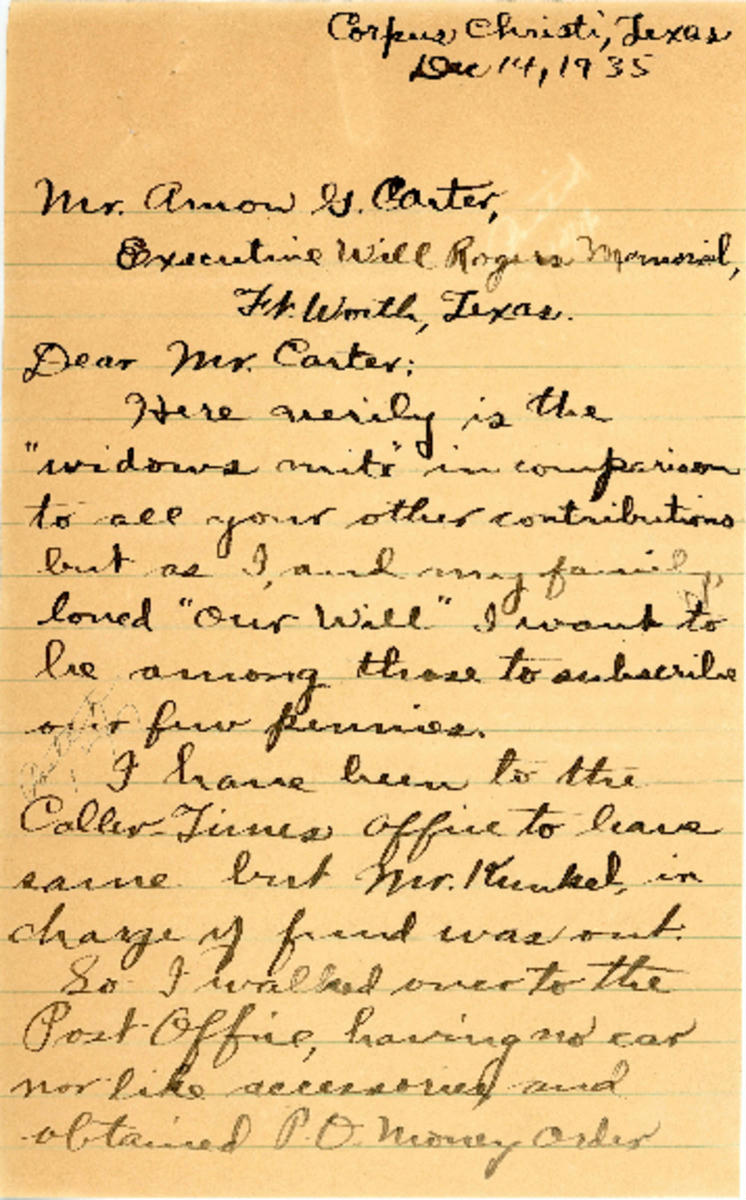 Corpus Christi, Texas
Dec 14, 1935
Mr. Amon G. Carter,
Executive Will Rogers Memorial,
Ft. Worth, Texas.
Dear Mr. Carter:
Here verily is the
"widows mite" in comparison
to all your other contributions
but as I, and my family,
loved "Our Will" I want to
be among those to subscribe
our few pennies.
I have been to the
Caller-Times office to leave
same but Mr. Kunkel, in
charge of fund was out.
So I walked over to the
Post Office, having no car
nor like accessories, and
obtained P.O. Money order